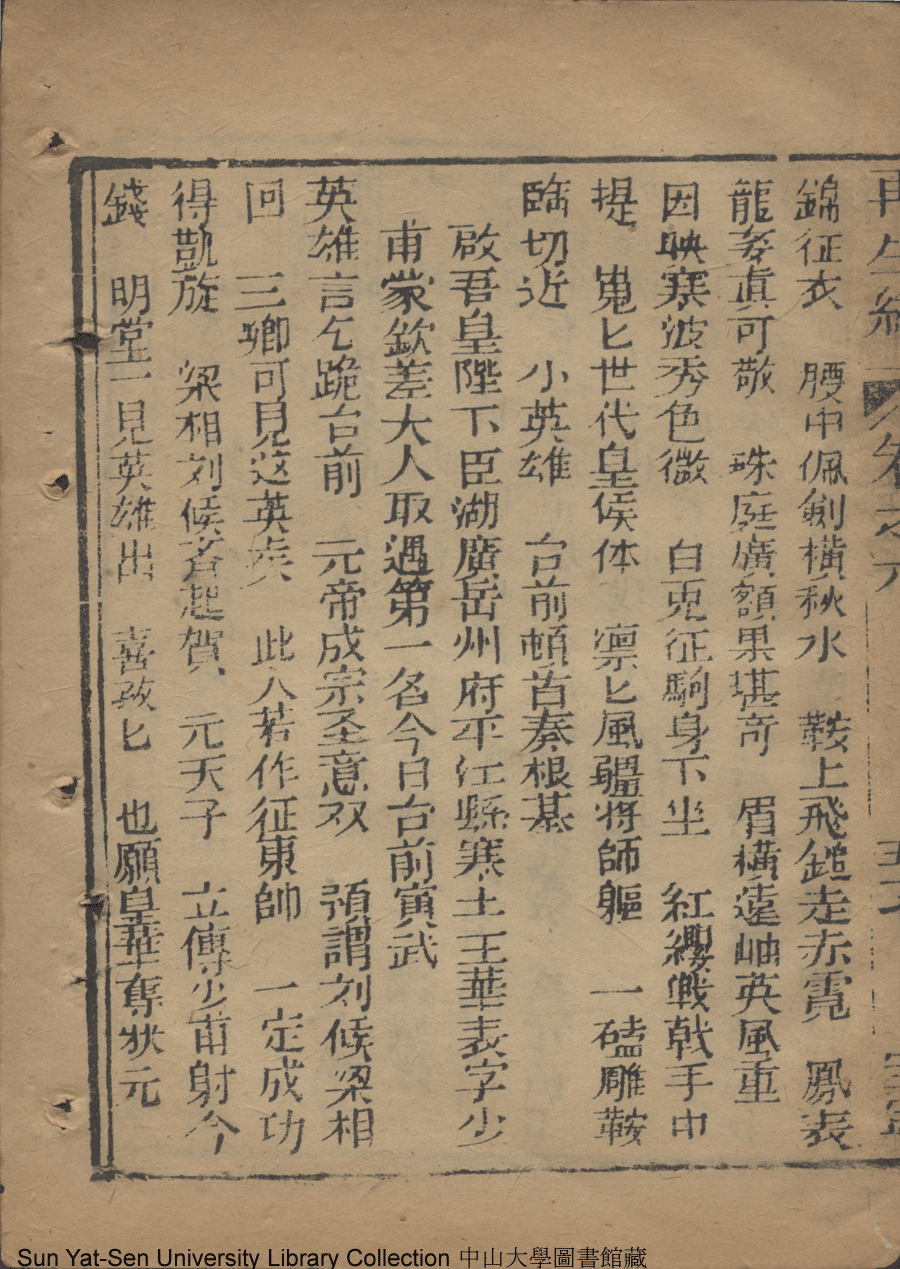 再生緣　卷之六
錦征衣　腰中佩劍橫秋水　鞍上飛鎚走赤霓　鳳表
龍姿真可敬　珠庭廣額果堪奇　眉橫遠岫英風重
因映寒波秀色微　白兎征駒身下坐　紅纓戰戟手中
提　嵬匕世代皇侯体　凛匕風疆將師軀　一磕雕鞍
臨切近　小英雄　台前頓首奏根基
啟吾皇陛下臣湖廣岳州府平江縣寒士王華表字少
甫蒙欽差大人取遇第一名今日台前寅武
英雄言乞跪台前　元帝成宗圣意双　預謂刘候梁相
回　三卿可見这英疾　此人若作征東帥　一定成功
得凱旋　梁相刘候斉起賀　元天子　立傳少甫射今
錢　明堂一見英雄出　喜孜匕　也願皇華奪狀元
Sun Yat-Sen University Library Collection 中山大學圖書館藏